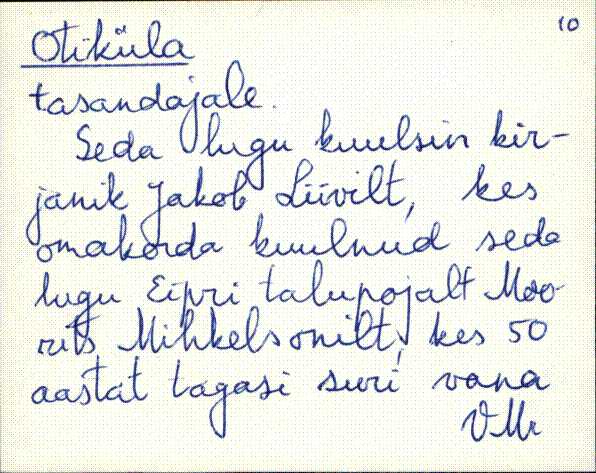 10
Otiküla
tasandajale.
Seda lugu kuulsin kir-
janik Jakob Liivilt, kes
omakorda kuulnud seda
lugu Eipri talupojalt Moo-
rits Mihkelsonilt, kes 50
aastat tagasi suri vana
VMr